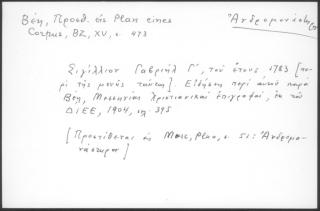 Βέη, Προσθ. εἰς Plan eines
Corpus, BZ, XV, σ. 473
Ἀνδρομονάστηρο
Σιγίλλιον Γαβριὴλ Γ', τοῦ ἔτους 1783 [πε-
ρὶ τῆς μονῆς ταύτης]. Εἴδησιν περὶ αὐτοῦ παρὰ
Βέῃ, Μεσσηνίας Χριστιανικαὶ ἐπιγραφαί, ἐκ τοῦ
ΔΙΕΕ, 1904, σελ. 395
[Προστίθεται εἰς Marc, Plan, σ. 51: Ἀνδρομο-
νάστηρον]